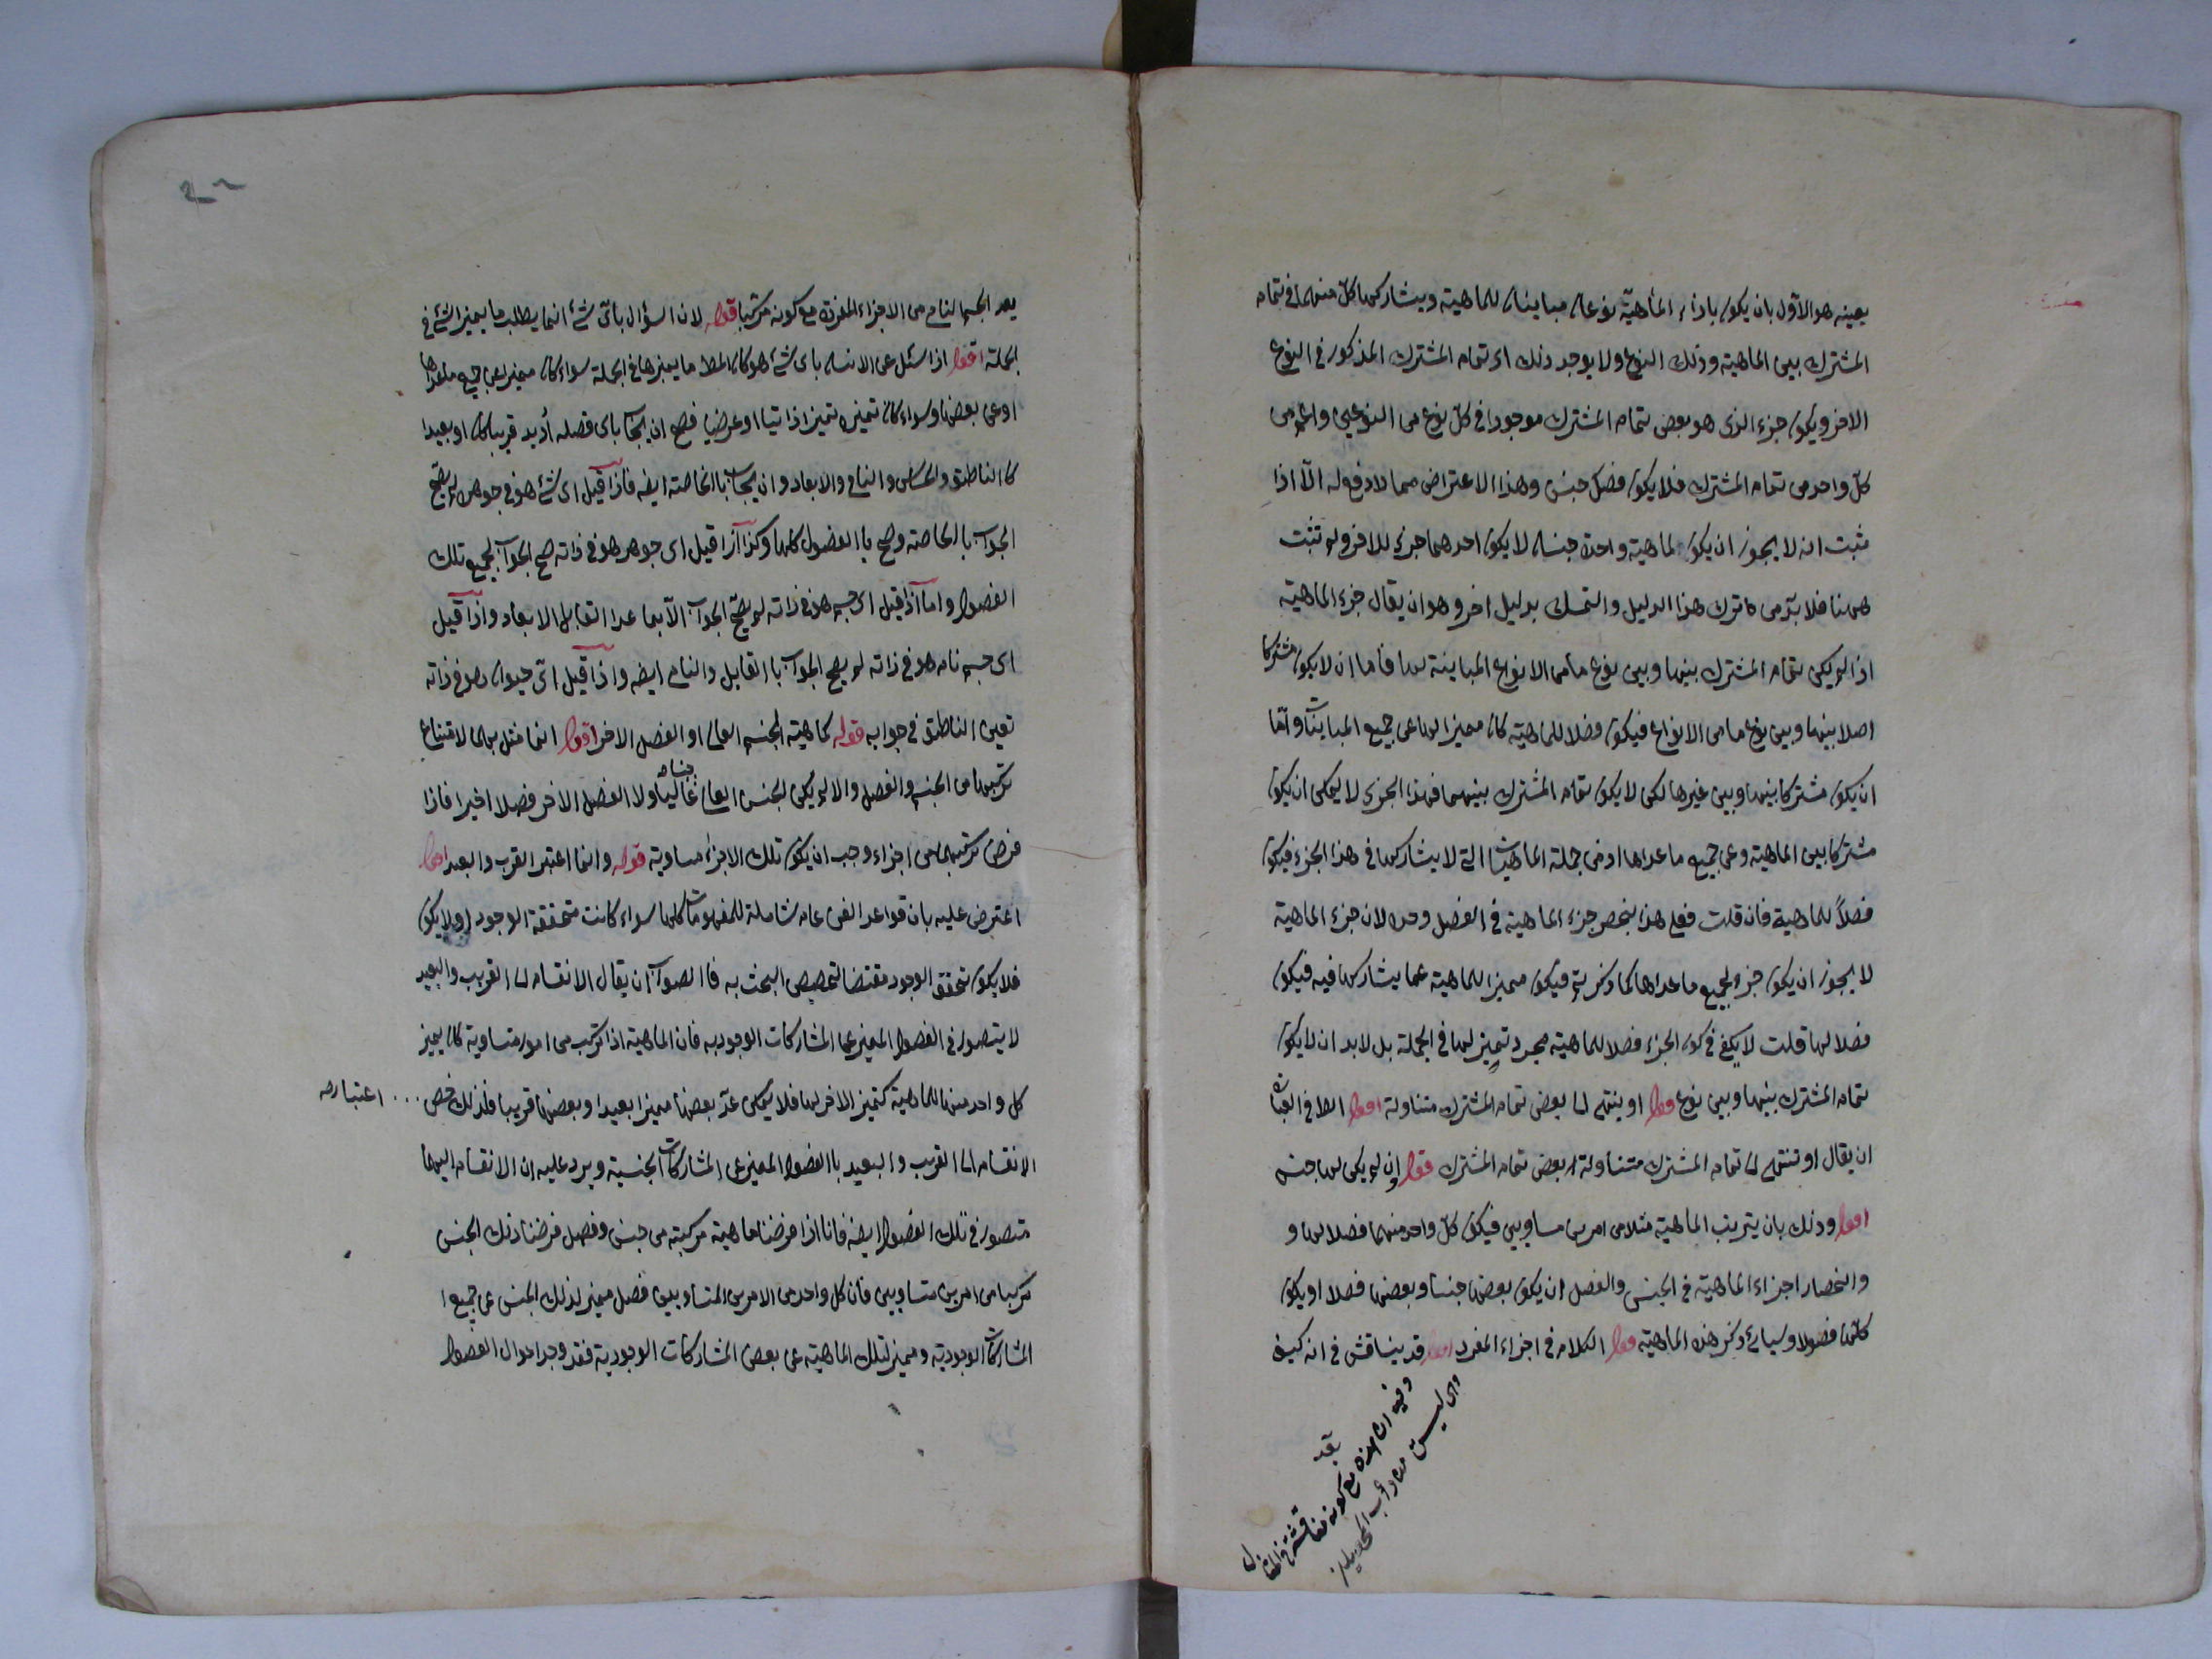 بعينه هو الاول بان يكون باذاء الماهية نوعان مباينان للماهية ويشاركها كل منهما في تمام
المشترك بين الماهية وذلك النوع ولا يوجد ذلك اى تمام المشترك المذكور في النوع
الاخر ويكون جزء الذى هو بعض تمام المشترك موجودا في كل نوع من النوعين واعم من
كل واحد من تمام المشترك فلا يكون فصل جنس وهذا الاعتراض مما لا دفع له الا اذا
ثبت انه لا يجوز ان يكون لماهية واحدة جنسان لا يكون احدهما جزء للاخر ولم تثبت
ههنا فلا بد من ترك هذا الدليل والتمسك بدليل اخر وهو ان يقال جزء الماهية
اذا لم يكن تمام المشترك بينها وبين نوع ما من الانواع المباينة لها فاما ان لا يكون مشتركا
اصلا بينها وبين نوع ما من الانواع فيكون فصلا للماهية كان مميزا لها عن جميع المباينات واما
ان يكون مشتركا بينها وبين غيرها لكن لا يكون تمام المشترك بينهما فهذا الجزء لا يمكن ان يكون
مشتركا بين الماهية وعن جميع ماعداها اذ من جملة الماهيات التى لا يشاركها في هذا الجزء فيكون
فصلا للماهية فان قلت فعلى هذا ينحصر جزء الماهية في الفصل وحده لان جزء الماهية
لا يجوز ان يكون جزء لجميع ماعداها كما ذكرتم فيكون مميزا للماهية عما يشاركها فيه فيكون
فصلا لها قلت لا يكفى في كون الجزء فصلا للماهية مجرد تميز لها في الجملة بل لابد ان لا يكون
تمام المشترك بينها وبين نوع قوله او ينتهى الى بعض تمام المشترك متناولة اقول الظ في العبارة
ان يقال او تنتهى الى تمام المشترك متناولة بعض تمام المشترك قوله وان لم يكن لها جنس
اقول وذلك بان يتركب الماهية مثلا من امرين مساويين فيكون كل واحد منهما فصلا لها و
وانحصار اجزاء الماهية في الجنس والفصل ان يكون بعضها جنسا وبعضها فصلا او يكون
كلها فصولا وسياتى ذكر هذه الماهية قوله الكلام في اجزاء المفرد اقول قد يناقش في انه كيف
وفيه ان هذه مع كونه مناقشة في المثال
يعد الجسم النامى من الاجزاء المفردة مع كونه مركبا قوله لان السؤال باى شئ انما يطلب ما يميز الشئ في
الجملة اقول اذا سئل عن الانسان باى شئ هو كان المط ما يميزها في الجملة سواء كان مميزا عن جميع ماعداها
او عن بعضها وسواء كان تميزه تميزا ذاتيا او عرضيا فصح ان يجاب باى فصل اريد قريبا كان او بعيدا
كالناطق والحساس والنامى والابعاد وان يجاب بالخاصة ايضا فاذا قيل اى شئ هو في جوهره لم يصح
الجواب بالخاصة وصح بالفصول كلها وكذا اذا قيل اى جوهر هو في ذاته صح الجواب بجميع تلك
الفصول واما اذا قيل اى جسم هو في ذاته لم يصح الجواب الا بما عدا القابل الابعاد واذا قيل
اى جسم نام هو في ذاته لم يصح الجواب بالقابل والنامى ايضا واذا قيل اى حيوان هو في ذاته
تعين الناطق في جوابه قوله كماهية الجنس العالى او الفصل الاخر اقول انما مثل بهما لامتناع
تركبهما من الجنس والفصل والا لم يكن الجنس العالى جنسا عاليا ولا الفصل الاخر فصلا اخيرا فاذا
فرض تركبهما من اجزاء وجب ان يكون تلك الاجزاء مساوية قوله وانما اعتبر القرب والبعد اقول
اعترض عليه بان قواعد الفن عام شاملة للمفهومات كلها سواء كانت متحققة الوجود اولا يكون
فلا يكون تحقق الوجود مقتضا لتخصيص البحث به فالصواب ان يقال الانقسام الى القريب والبعيد
لا يتصور في الفصول المميز عما المشاركات الوجودية فان الماهية اذا تركب من امور متساوية كان يميز
كل واحد منها للماهية كتميز الاخر لها فلا يمكن عد بعضها مميزا بعيدا وبعضها قريبا فلذلك خص ... اعتباره
الانقسام الى القريب والبعيد بالفصول المميز عن المشاركات الجنسية ويرد عليه ان الانقسام اليهما
متصور في تلك الفصول ايضا فانا اذا فرضنا ماهية مركبة من جنس وفصل فرضنا ذلك الجنس
مركبا من امرين متساويين فان كل واحد من الامرين المتساويين فصل مميز لذلك الجنس عن جميع
المشاركات الوجودية ومميز لتلك الماهية عن بعض المشاركات الوجودية فقد وجد احوال الفصول